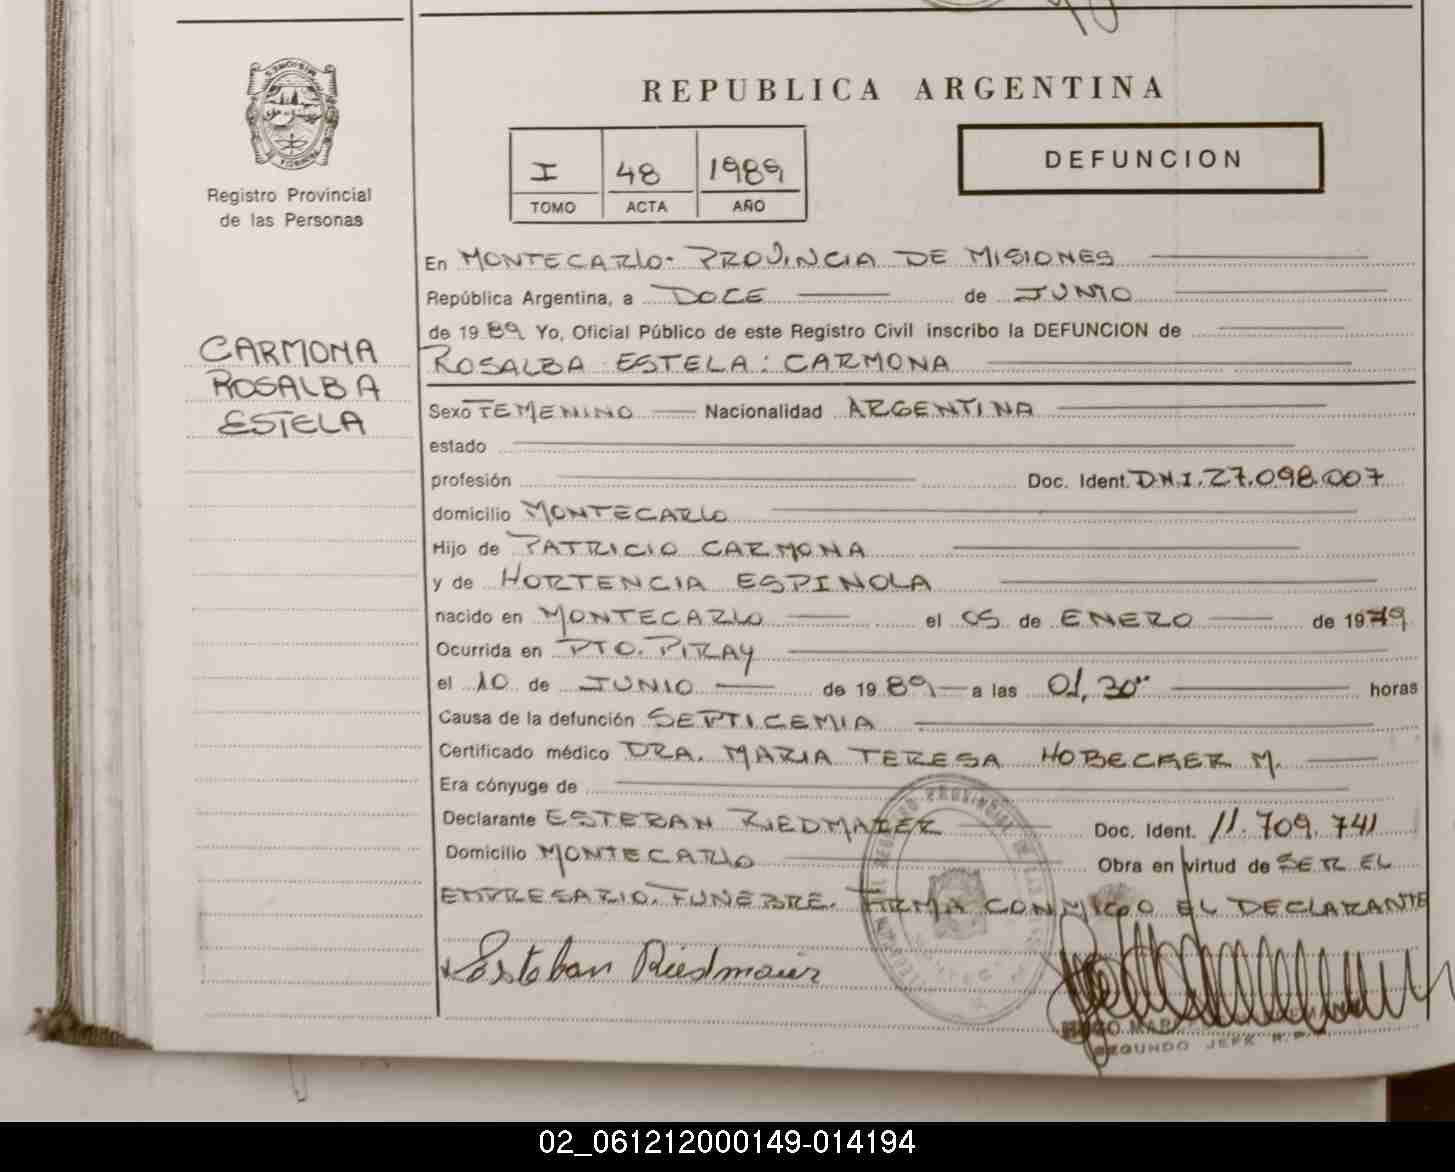 REPUBLICA ARGENTINA
I 48 1989
TOMO ACTA AÑO
DEFUNCION
Registro Provincial
de las Personas
CARMONA
ROSALBA
ESTELA
En MONTECARLO - PROVINCIA DE MISIONES
República Argentina, a DOCE de JUNIO
de 1989 Yo, Oficial Público de este Registro Civil inscribo la DEFUNCION de
ROSALBA ESTELA: CARMONA
Sexo FEMENINO Nacionalidad ARGENTINA
estado
profesión Doc. Ident. D.N.I. 27.098.007
domicilio MONTECARLO
Hijo de PATRICIO CARMONA
y de HORTENCIA ESPINOLA
nacido en MONTECARLO el 05 de ENERO de 1979
Ocurrida en PTO. PIRAY
el 10 de JUNIO de 1989 a las 01,30 horas
Causa de la defunción SEPTICEMIA
Certificado médico DRA. MARIA TERESA HOBECKER M.
Era cónyuge de
Declarante ESTEBAN RIEDMAIER Doc. Ident. 11.709.741
Domicilio MONTECARLO Obra en virtud de SER EL
EMPRESARIO FUNEBRE. FIRMA CONMIGO EL DECLARANTE
Esteban Riedmaier
HUGO
SEGUNDO JEFE R.P.
02_061212000149-014194